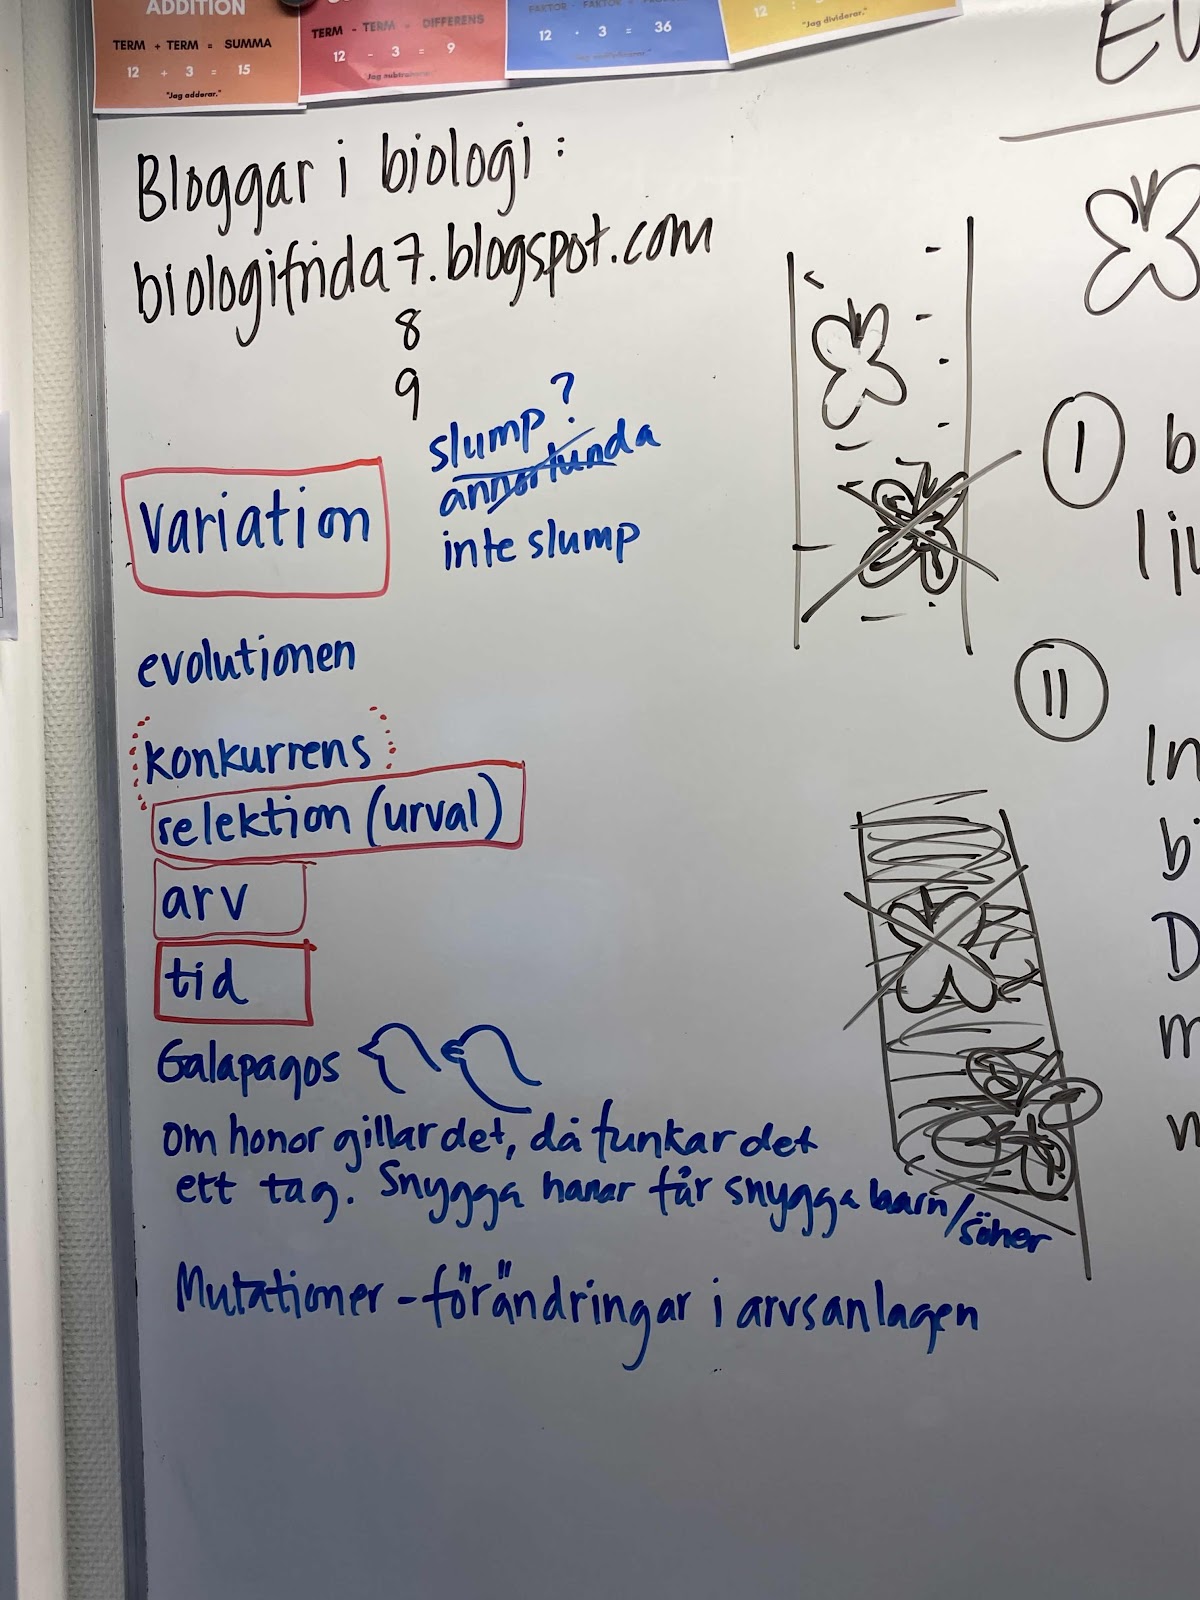 ADDITION
TERM + TERM = SUMMA
12 + 3 = 15
"Jag adderar."
TERM - TERM = DIFFERENS
12 - 3 = 9
"Jag subtraherar."
FAKTOR · FAKTOR =
12 · 3 = 36
12 :
"Jag dividerar."
Bloggar i biologi:
biologifrida7.blogspot.com
8
9
slump?
annorlunda
inte slump
Variation
evolutionen
konkurrens
selektion (urval)
arv
tid
Galapagos
om honor gillar det, då funkar det
ett tag. Snygga hanar får snygga barn/söner
Mutationer - förändringar i arvsanlagen
I
b
lju
II
In
bi
D
m